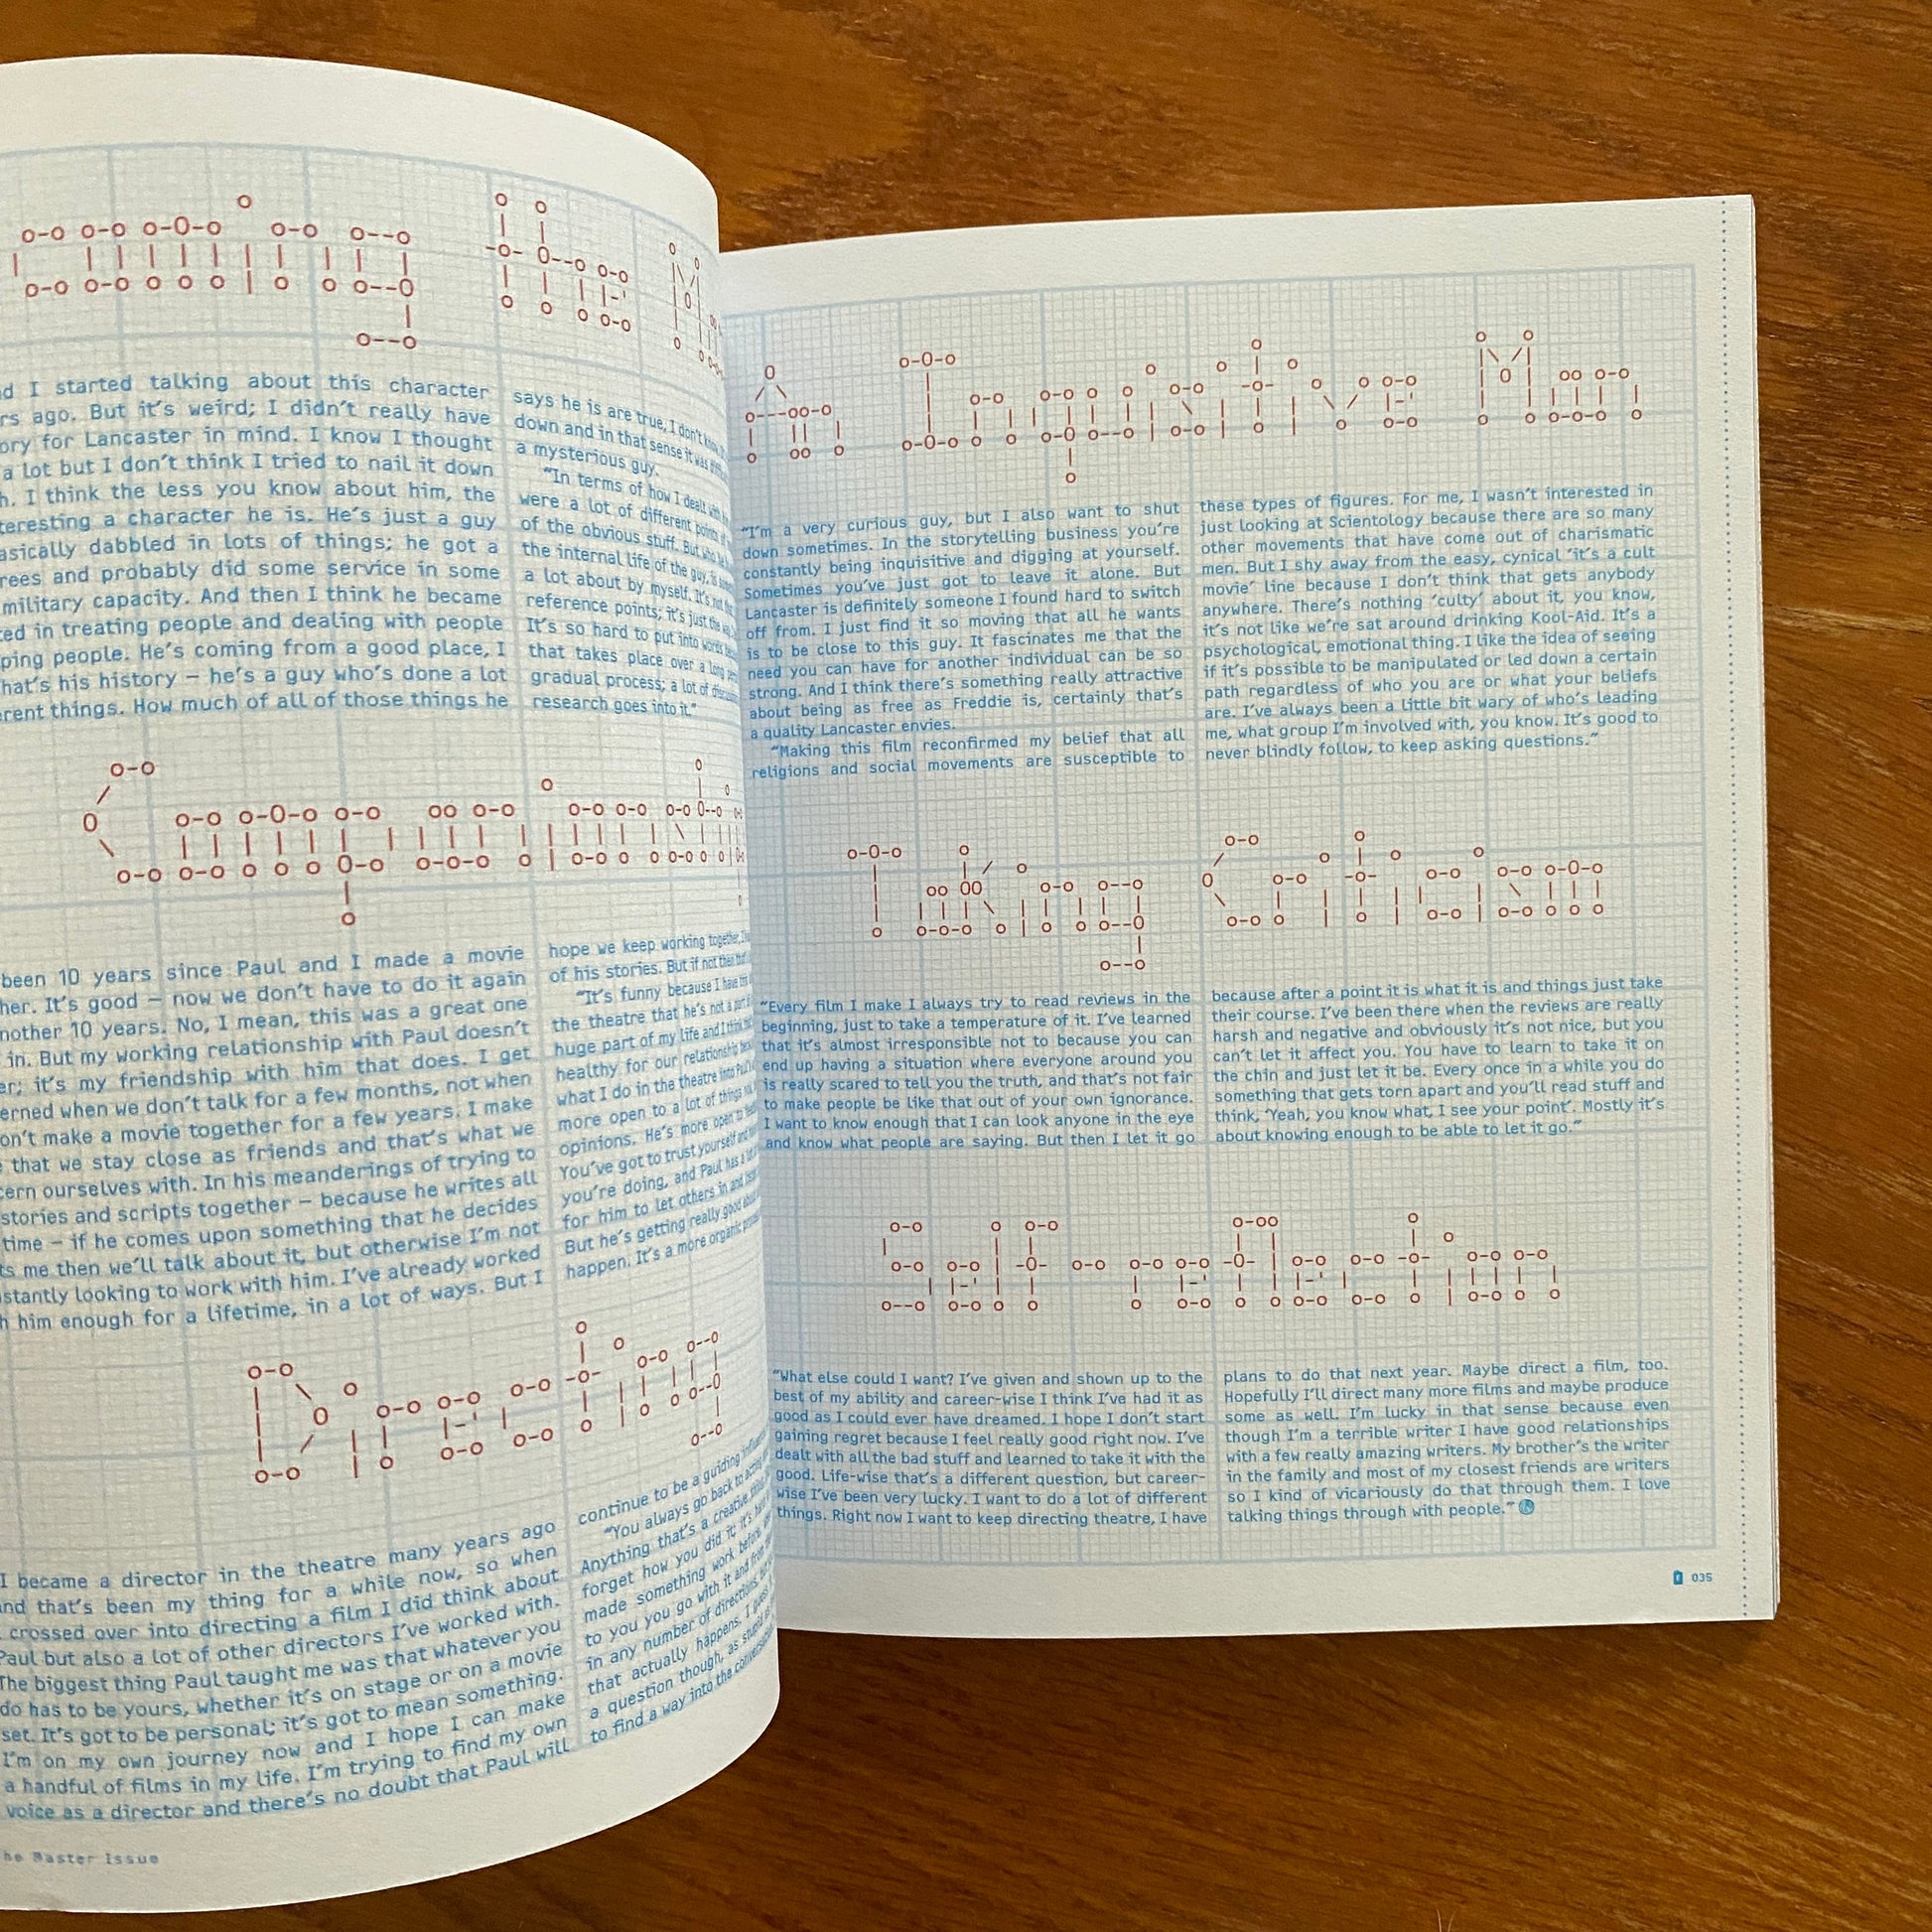 coming The
I started talking about this character
ago. But it's weird; I didn't really have
for Lancaster in mind. I know I thought
a lot but I don't think I tried to nail it down
I think the less you know about him, the
a character he is. He's just a guy
dabbled in lots of things; he got a
and probably did some service in some
military capacity. And then I think he became
in treating people and dealing with people
people. He's coming from a good place, I
his history – he's a guy who's done a lot
things. How much of all of those things he
says he is are true, I don't
down and in that sense it was
a mysterious guy.
"In terms of how I dealt with
were a lot of different points of
of the obvious stuff. But who he
the internal life of the guy, is
a lot about by myself. It's not
reference points; it's just the
It's so hard to put into words
that takes place over a long
gradual process; a lot of
research goes into it."
Companionship
been 10 years since Paul and I made a movie
It's good – now we don't have to do it again
10 years. No, I mean, this was a great one
in. But my working relationship with Paul doesn't
it's my friendship with him that does. I get
when we don't talk for a few months, not when
make a movie together for a few years. I make
that we stay close as friends and that's what we
ourselves with. In his meanderings of trying to
stories and scripts together – because he writes all
time – if he comes upon something that he decides
me then we'll talk about it, but otherwise I'm not
looking to work with him. I've already worked
him enough for a lifetime, in a lot of ways. But I
hope we keep working together,
of his stories. But if not then
"It's funny because I have
the theatre that he's not a part
huge part of my life and I think
healthy for our relationship
what I do in the theatre into
more open to a lot of things
opinions. He's more open to
You've got to trust yourself and
you're doing, and Paul has a
for him to let others in and
But he's getting really good
happen. It's a more organic
Directing
I became a director in the theatre many years ago
and that's been my thing for a while now, so when
crossed over into directing a film I did think about
Paul but also a lot of other directors I've worked with.
The biggest thing Paul taught me was that whatever you
do has to be yours, whether it's on stage or on a movie
set. It's got to be personal; it's got to mean something.
I'm on my own journey now and I hope I can make
a handful of films in my life. I'm trying to find my own
voice as a director and there's no doubt that Paul will
continue to be a guiding
"You always go back to
Anything that's a creative
forget how you did it; it's
made something work before,
to you you go with it and
in any number of directions,
that actually happens. I guess
a question though, as
to find a way into the
Master Issue
An Inquisitive Man
"I'm a very curious guy, but I also want to shut
down sometimes. In the storytelling business you're
constantly being inquisitive and digging at yourself.
Sometimes you've just got to leave it alone. But
Lancaster is definitely someone I found hard to switch
off from. I just find it so moving that all he wants
is to be close to this guy. It fascinates me that the
need you can have for another individual can be so
strong. And I think there's something really attractive
about being as free as Freddie is, certainly that's
a quality Lancaster envies.
"Making this film reconfirmed my belief that all
religions and social movements are susceptible to
these types of figures. For me, I wasn't interested in
just looking at Scientology because there are so many
other movements that have come out of charismatic
men. But I shy away from the easy, cynical 'it's a cult
movie' line because I don't think that gets anybody
anywhere. There's nothing 'culty' about it, you know,
it's not like we're sat around drinking Kool-Aid. It's a
psychological, emotional thing. I like the idea of seeing
if it's possible to be manipulated or led down a certain
path regardless of who you are or what your beliefs
are. I've always been a little bit wary of who's leading
me, what group I'm involved with, you know. It's good to
never blindly follow, to keep asking questions."
Taking Criticism
"Every film I make I always try to read reviews in the
beginning, just to take a temperature of it. I've learned
that it's almost irresponsible not to because you can
end up having a situation where everyone around you
is really scared to tell you the truth, and that's not fair
to make people be like that out of your own ignorance.
I want to know enough that I can look anyone in the eye
and know what people are saying. But then I let it go
because after a point it is what it is and things just take
their course. I've been there when the reviews are really
harsh and negative and obviously it's not nice, but you
can't let it affect you. You have to learn to take it on
the chin and just let it be. Every once in a while you do
something that gets torn apart and you'll read stuff and
think, 'Yeah, you know what, I see your point'. Mostly it's
about knowing enough to be able to let it go."
Self-reflection
"What else could I want? I've given and shown up to the
best of my ability and career-wise I think I've had it as
good as I could ever have dreamed. I hope I don't start
gaining regret because I feel really good right now. I've
dealt with all the bad stuff and learned to take it with the
good. Life-wise that's a different question, but career-
wise I've been very lucky. I want to do a lot of different
things. Right now I want to keep directing theatre, I have
plans to do that next year. Maybe direct a film, too.
Hopefully I'll direct many more films and maybe produce
some as well. I'm lucky in that sense because even
though I'm a terrible writer I have good relationships
with a few really amazing writers. My brother's the writer
in the family and most of my closest friends are writers
so I kind of vicariously do that through them. I love
talking things through with people."
035